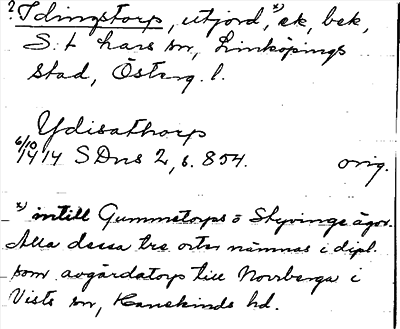 ? Idingstorp, utjord, x) ek, bek,
S:t Lars sn, Linköpings
stad, Österg. l.
Ydisathorp
6/10 1414 SDns 2, s. 854. orig.
x) intill Gummetorps o Styvinge ägor.
Alla dessa tre orter nämnas i dipl.
som avgärdatorp till Norrberga i
Vists sn, Hanekinds hd.